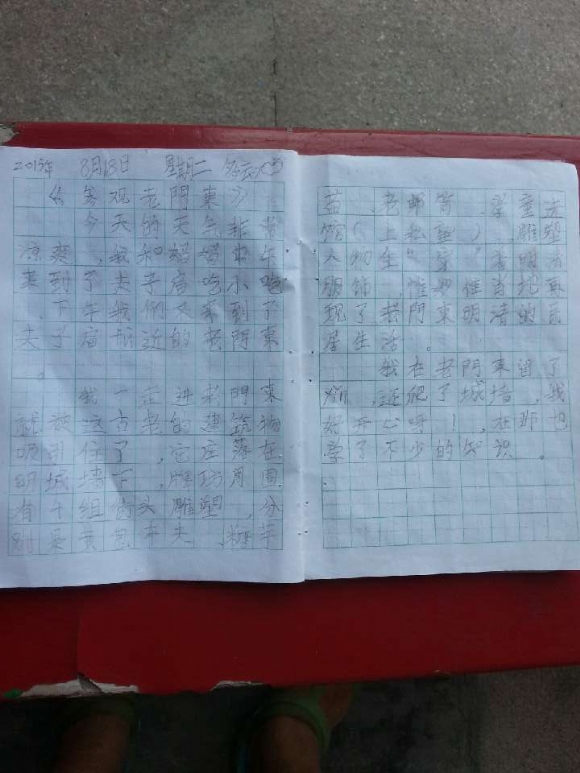 2015年 8月18日 星期二
《参观老門東》
今天的天气非常
凉爽,我和妈妈中午
来到了夫子庙吃小吃
,下午我们又来到了
夫子庙附近的老門東
。
我一走进老門東
就被这古老的建筑物
吸引住了,它座落在
明城墙下,牌坊周围
有十组街头雕塑,分
别是黄包车夫、
人物生"穿"着明清
服饰,惟妙惟肖地再
现了老門東明清的民
居生活。
我在老門東留了
影,还爬了城墙,我
好开心呀!,在那也
学了不少的知识。